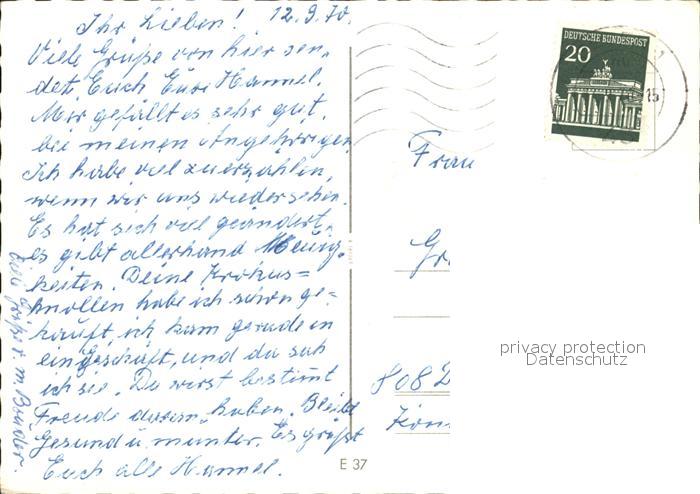 Ihr Lieben! 12.9.70.
Viele Grüße von hier sen-
det Euch Eure Hannel.
Mir gefällt es sehr gut,
bei meinen Angehörigen
Ich habe viel zu erzählen,
wenn wir uns wiedersehen.
Es hat sich viel geändert,
es gibt allerhand Neuig-
keiten. Deine Krokus=
knollen habe ich schon ge=
kauft, ich kam gerade in
ein Geschäft, und da sah
ich sie. Du wirst bestimmt
Freude daran haben. Bleibt
Gesund u. munter. Es grüßt
Euch alle Hannel.
Viele Grüße v. m. Bruder.
DEUTSCHE BUNDESPOST
20
15
Frau
Gr
808 D
E 37
privacy protection
Datenschutz